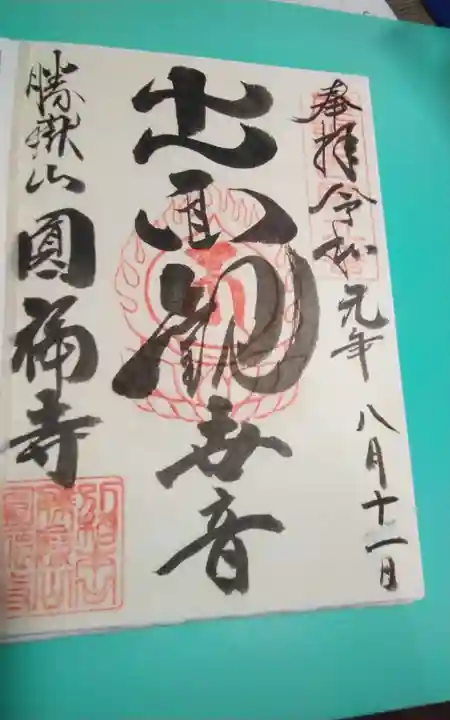 奉拝 令和元年 八月十一日
十一面観世音
勝嶽山 圓福寺